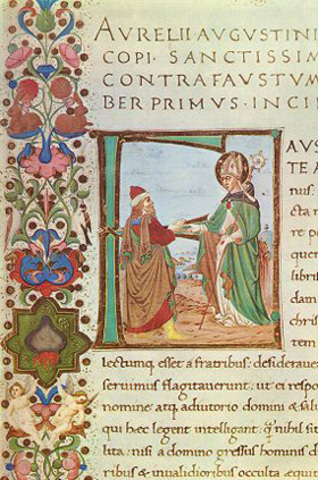 AVRELII·AVGVSTINI
COPI·SANCTISSIM
CONTRAFAVSTVM
BER PRIMVS·INCI
F AVS
TE A
nus:
cta n
re p
quer
libris
dam
chris
tem
lectumq; esset a fratribus: desiderave
servimus flagitaverunt: ut ei respo
nomine atq; adiutorio domini & salu
qui hec legent intelligant: q nihil sit
lita: nisi a domino gressus hominis d
ribus & invalidioribus occulta